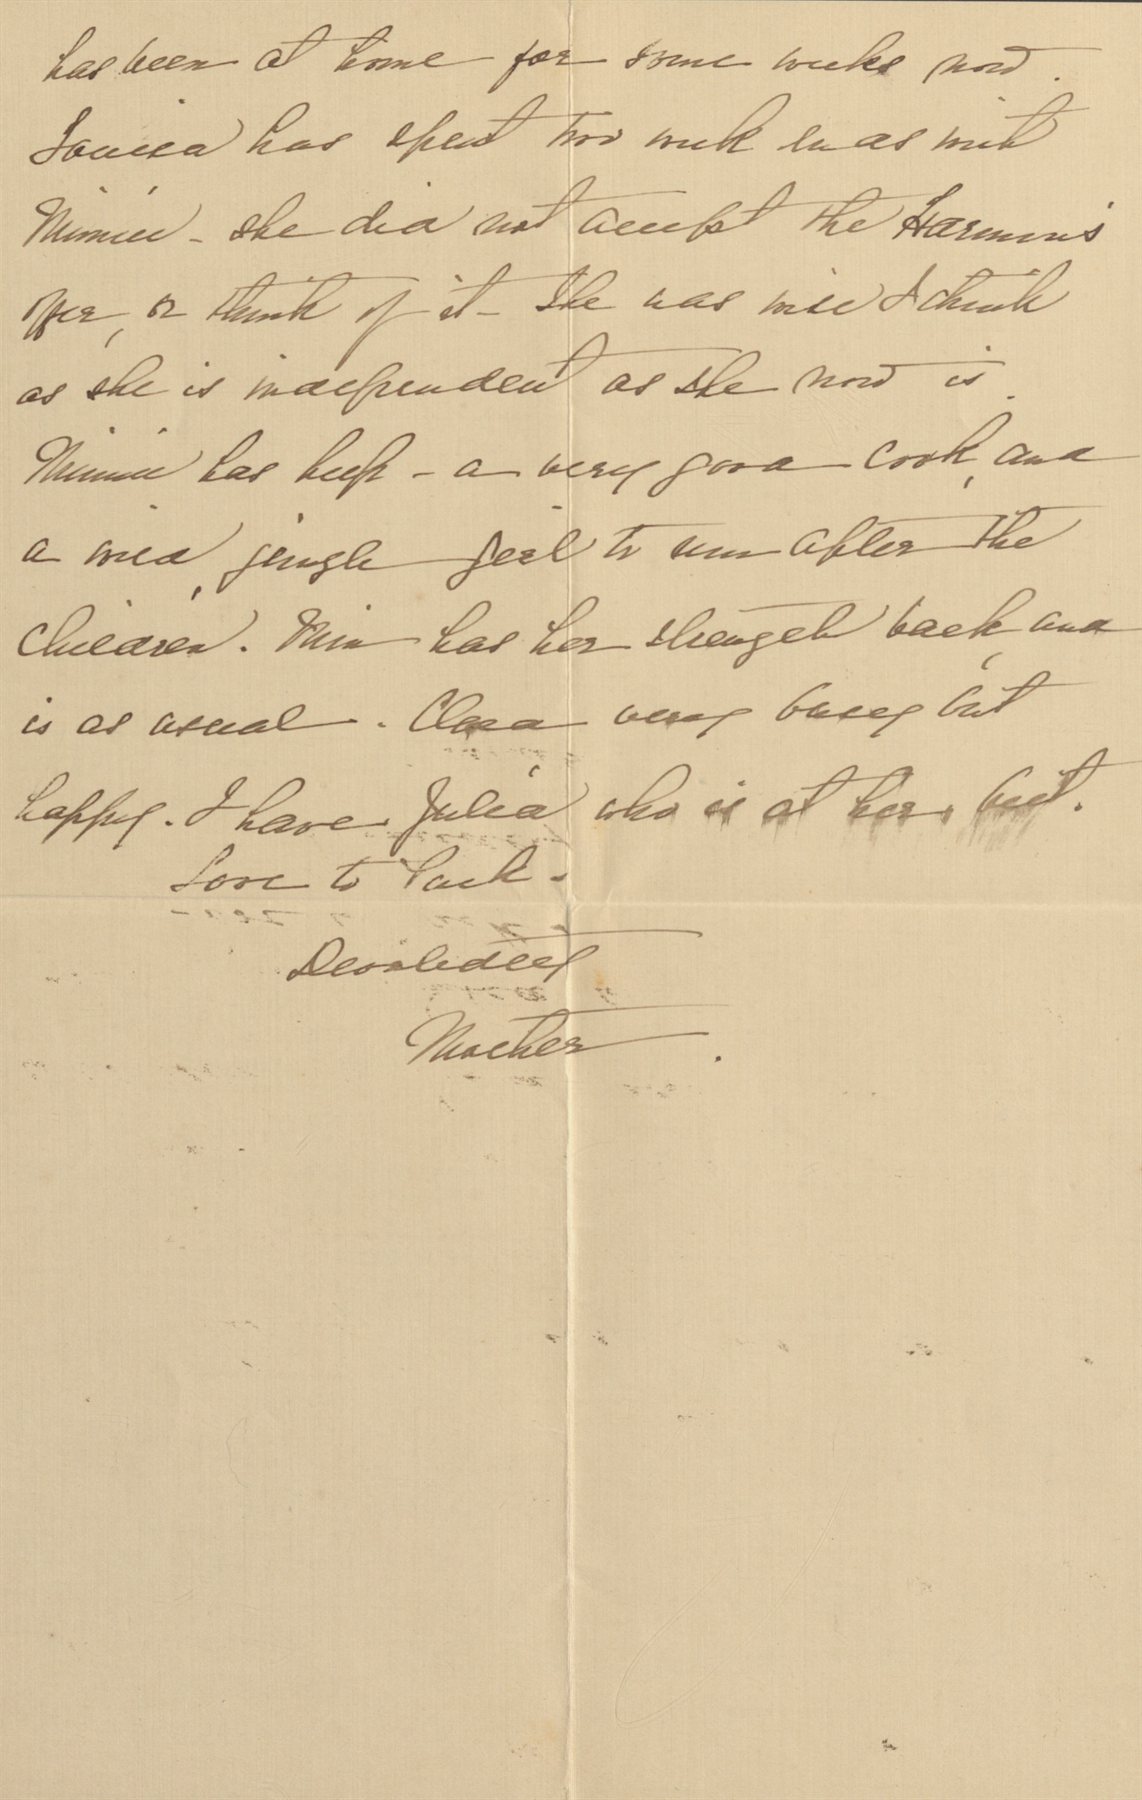 has been at home for some weeks now.
Louisa has spent two week ends with
Minnie - she did not accept the Harmon's
offer, or think of it - She was wise I think
as she is independent as she now is.
Minnie has help - a very good cook, and
a wild, jungle girl to run after the
children. Min has her strength back, and
is as usual. Clara very busey but
happy. I have Julia who is at her best.
Love to Jack.
Devotedly
Mother.